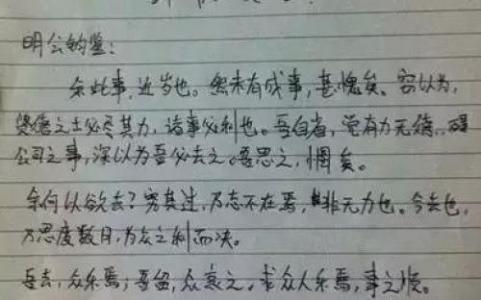 明公钧鉴：
余此事，近岁也。然未有成事，甚愧矣。窃以为，
贤德之士必尽其力，诸事必利也。吾自省，觉有力无绩，碍
公司之事，深以为吾必去之。吾思之，惆矣。
余何以欲去？究其过，乃志不在焉，非无力也。今去也，
乃思度数月，为众之利而决。
吾去，众乐焉；吾留，众哀之。求众人乐焉，事之顺。